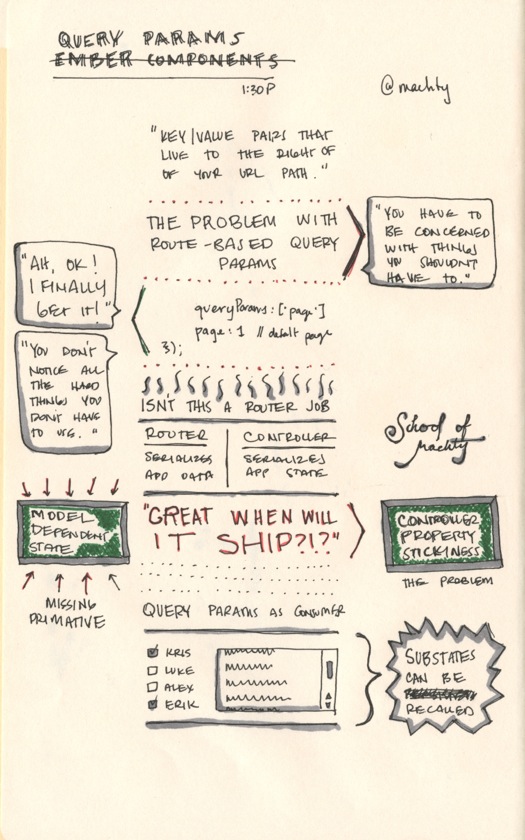 QUERY PARAMS
EMBER COMPONENTS
1:30P
@machty
"KEY/VALUE PAIRS THAT
LIVE TO THE RIGHT OF
OF YOUR URL PATH."
THE PROBLEM WITH
ROUTE-BASED QUERY
PARAMS
"YOU HAVE TO
BE CONCERNED
WITH THINGS
YOU SHOULDN'T
HAVE TO."
"AH, OK!
I FINALLY
GET IT!"
queryParams: ['page']
page: 1 // default page
});
"YOU DON'T
NOTICE ALL
THE HARD
THINGS YOU
DON'T HAVE
TO USE."
ISN'T THIS A ROUTER JOB
ROUTER
SERIALIZES
APP DATA
CONTROLLER
SERIALIZES
APP STATE
School of
Machty
MODEL
DEPENDENT
STATE
MISSING
PRIMATIVE
"GREAT WHEN WILL
IT SHIP?!?"
CONTROLLER
PROPERTY
STICKINESS
THE PROBLEM
QUERY PARAMS AS CONSUMER
KRIS
LUKE
ALEX
ERIK
SUBSTATES
CAN BE
RECALLED